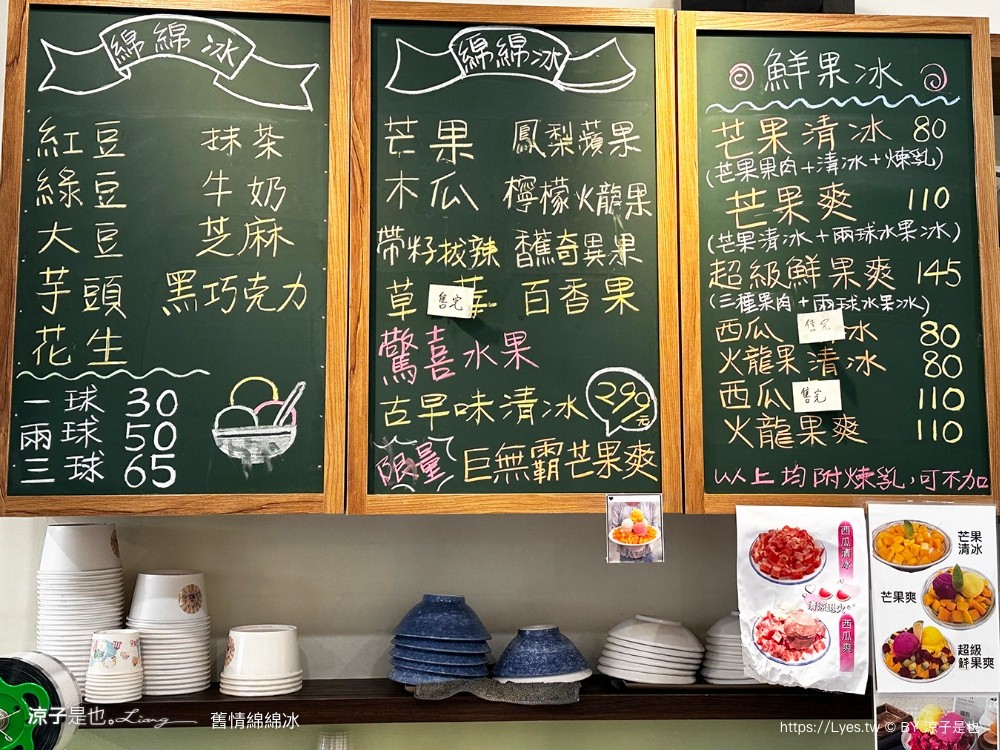 綿綿冰
紅豆 抹茶
綠豆 牛奶
大豆 芝麻
芋頭 黑巧克力
花生
一球 30
兩球 50
三球 65
綿綿冰
芒果 鳳梨蘋果
木瓜 檸檬火龍果
帶籽拔辣 香蕉奇異果
草 售完 百香果
驚喜水果
古早味清冰 299元
限量 巨無霸芒果爽
鮮果冰
芒果清冰 80
(芒果果肉+清冰+煉乳)
芒果爽 110
(芒果清冰+兩球水果冰)
超級鮮果爽 145
(三種果肉+兩球水果冰)
西瓜 售完 冰 80
火龍果清冰 80
西瓜 售完 110
火龍果爽 110
以上均附煉乳,可不加
西瓜清冰
西瓜爽
芒果
清冰
芒果爽
超級
鮮果爽
涼子是也。Liang 舊情綿綿冰
https://Lyes.tw © BY 涼子是也